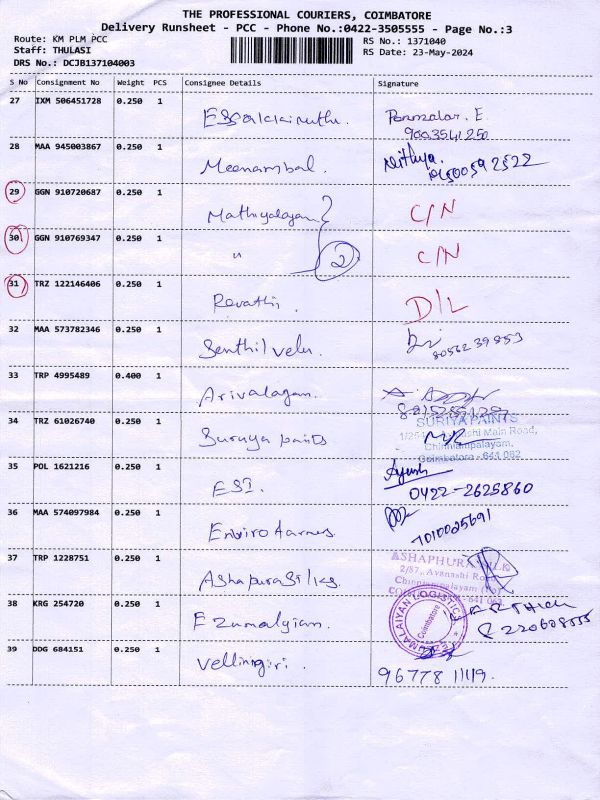 THE PROFESSIONAL COURIERS, COIMBATORE
Delivery Runsheet - PCC - Phone No.:0422-3505555 - Page No.:3
Route: KM PLM PCC
Staff: THULASI
DRS No.: DCJB137104003
RS No.: 1371040
RS Date: 23-May-2024
S No Consignment No Weight PCS Consignee Details Signature
27 IXM 506451728 0.250 1
9003541250
28 MAA 945003867 0.250 1 Meenambal. Nithya.
29 GGN 910720687 0.250 1 Mathiyalagan C/N
30 GGN 910769347 0.250 1 " 2 C/N
31 TRZ 122146406 0.250 1 Revathi. D/L
32 MAA 573782346 0.250 1 Senthil velu.
8056239853
33 TRP 4995489 0.400 1 Arivalagan.
34 TRZ 61026740 0.250 1 Suruya paints SURIYA PAINTS
Avinashi Main Road,
Chinniampalayam,
Coimbatore - 641 062
35 POL 1621216 0.250 1 ESI. Ayush
0422-2625860
36 MAA 574097984 0.250 1
7010025691
37 TRP 1228751 0.250 1 Ashapura Silks. ASHAPHURA SILK
2/87, Avanashi Road
Chinniampalayam
38 KRG 254720 0.250 1 Ezumalaiyan
EZHUMALAIYAN LOGISTICS
Coimbatore
39 DDG 684151 0.250 1 Vellingiri.
96778 11119.